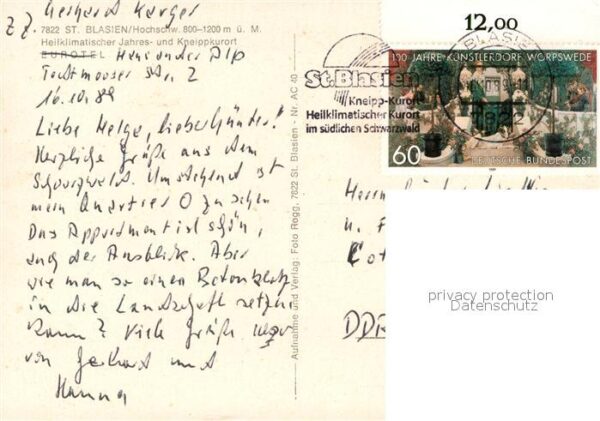 z Z. Gerhard Karger
7822 ST. BLASIEN/Hochschw. 800–1200 m ü. M.
Heilklimatischer Jahres- und Kneippkurort
EUROTEL Haus an der Alp
2
16.10.89
Liebe Helga, lieber Günter!
Herzliche Grüße aus dem
Schwarzwald. Umstehend ist
mein Quartier O zu sehen
Das Appartment ist schön,
auch der Ausblick. Aber
wie man so einen Betonklotz
in die Landschaft setzen
kann? Viele Grüße
von Gerhard und
Hanna
Aufnahme und Verlag: Foto Rogg, 7822 St. Blasien - Nr. AC 40
12,00
100 JAHRE KÜNSTLERDORF WORPSWEDE
60
DEUTSCHE BUNDESPOST
St. Blasien
Kneipp-Kurort
Heilklimatischer Kurort
im südlichen Schwarzwald
ST. BLASIEN
7822
Herrn
u. F
Cot
DDR
privacy protection
Datenschutz